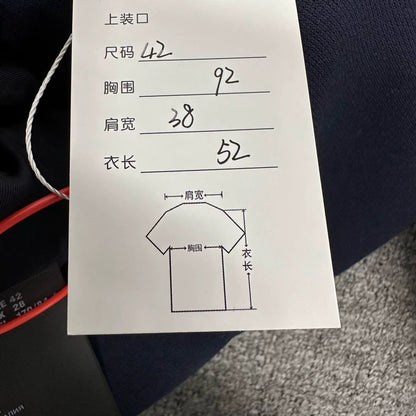 上装口
尺码 42
胸围 92
肩宽 38
衣长 52
肩宽
胸围
衣长
42
26